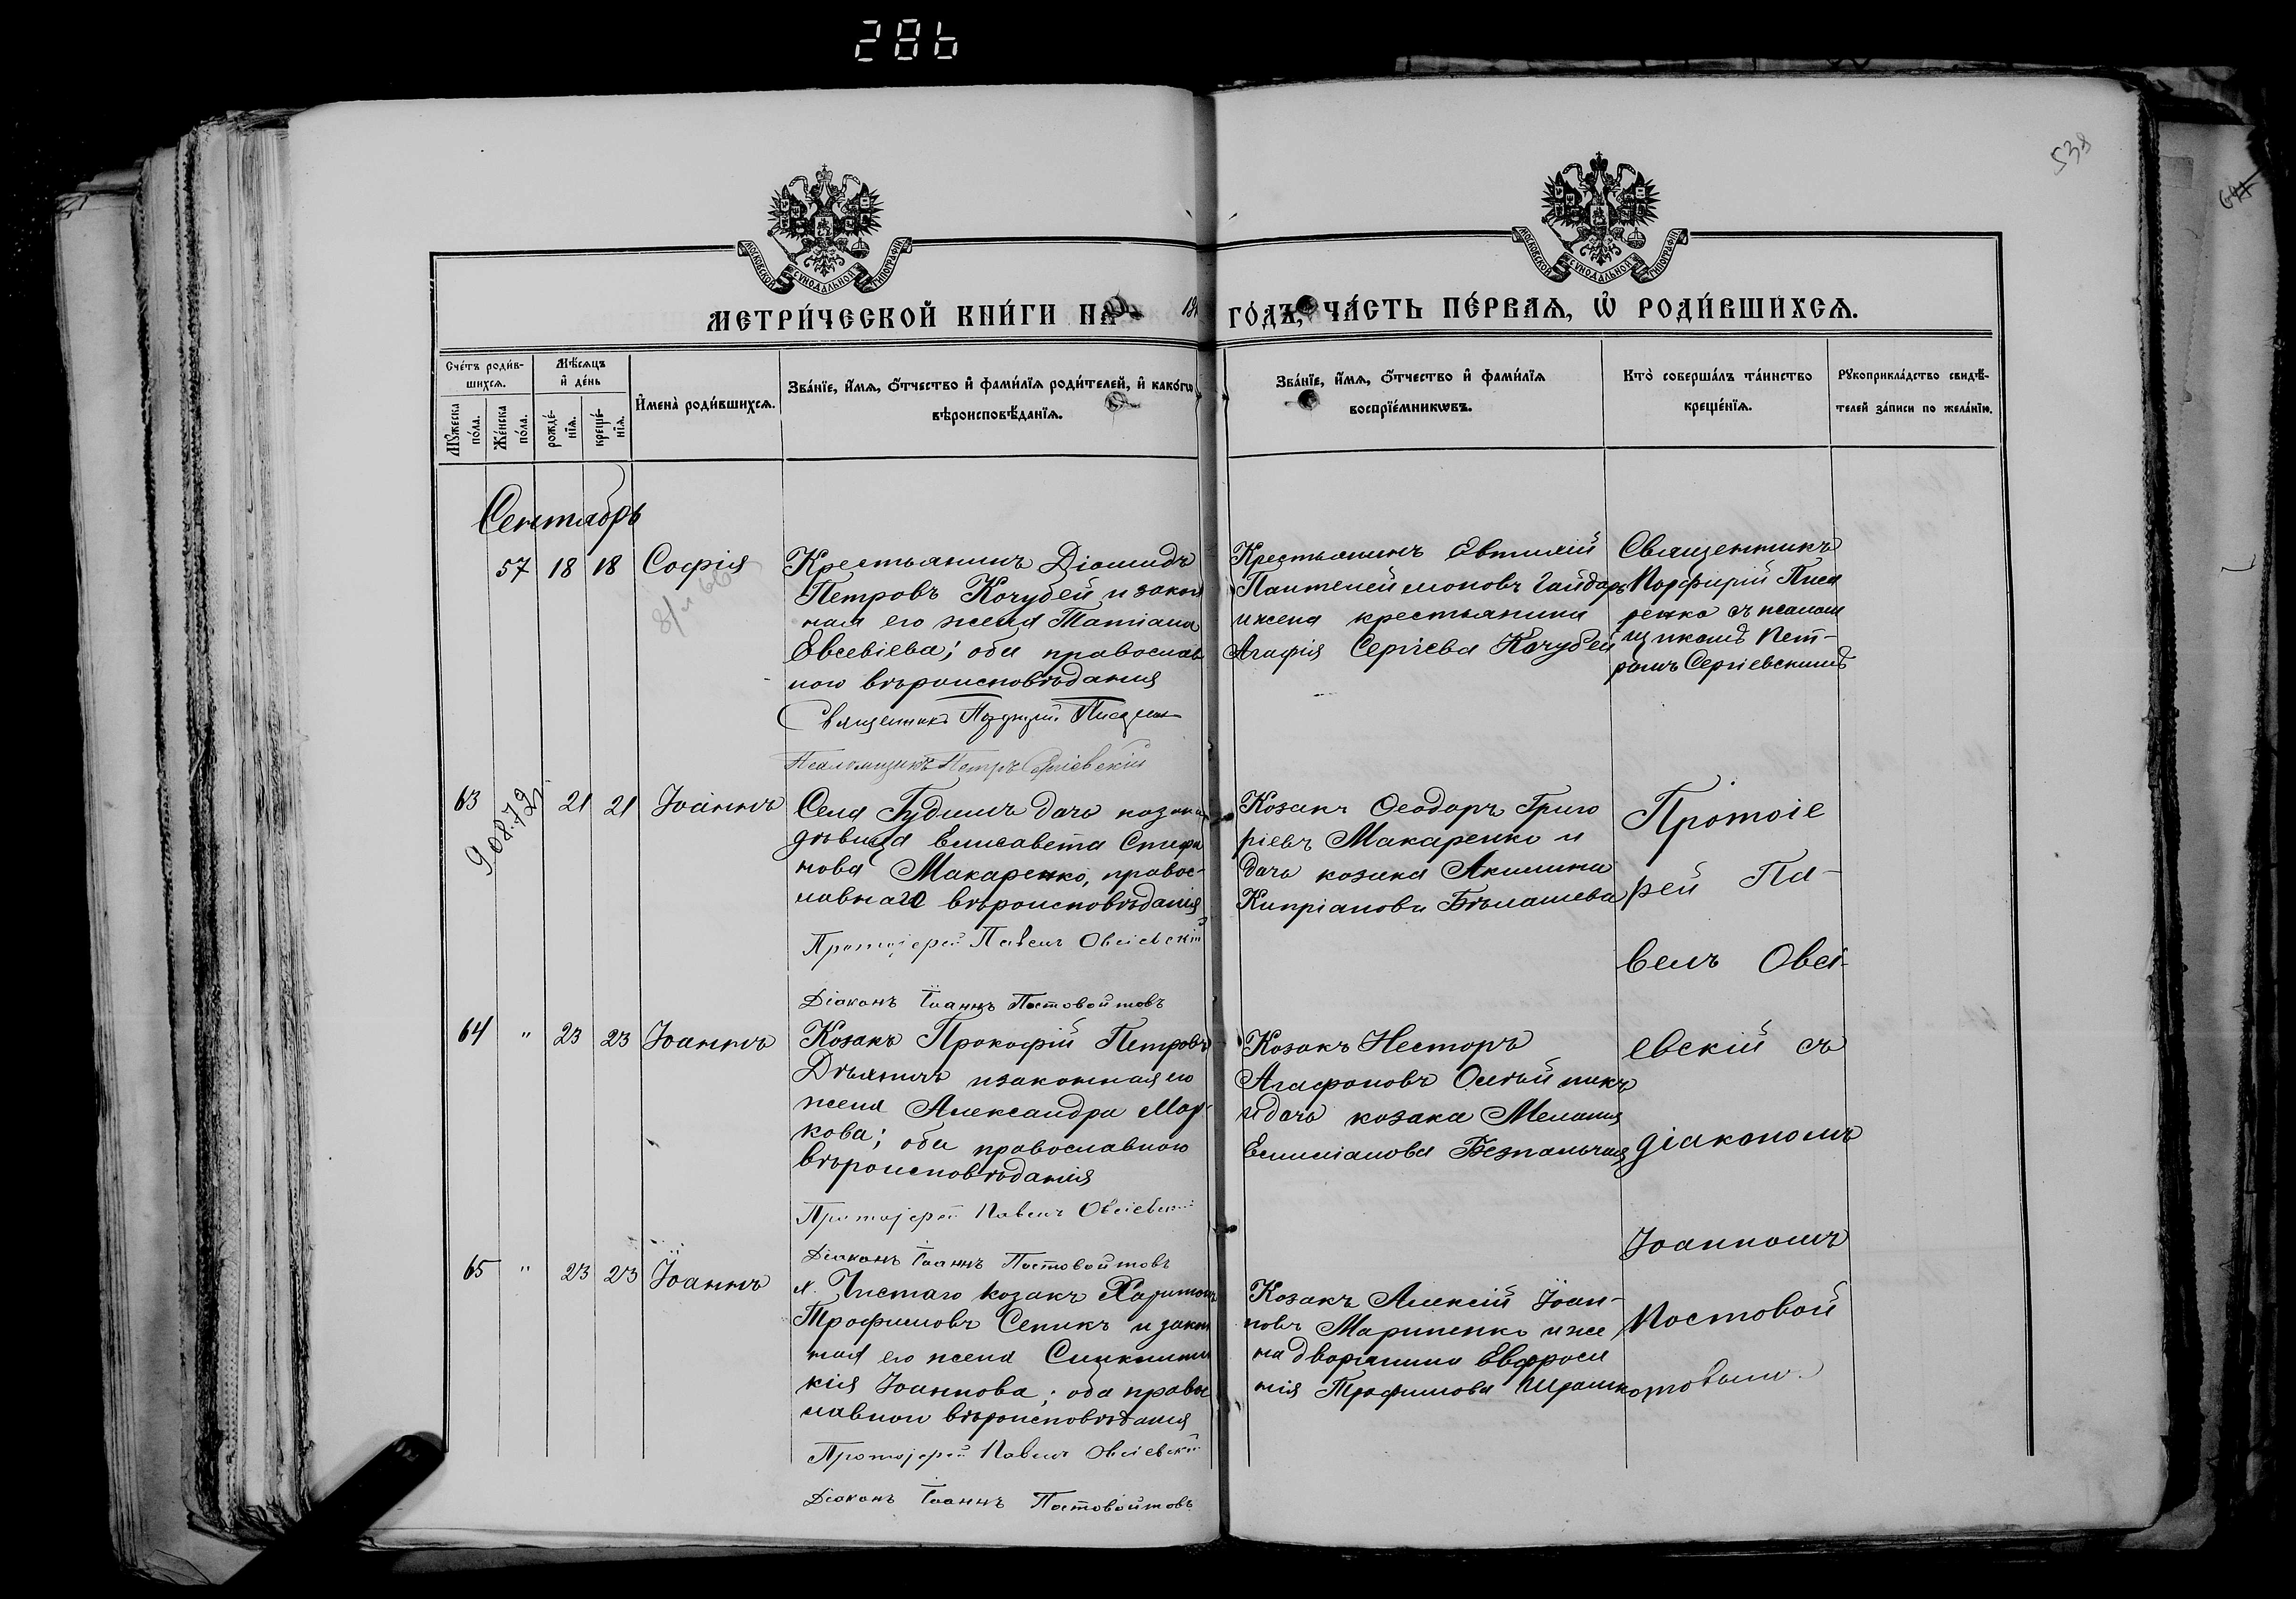 286
538
МОСКОВСКОЙ СѴНОДАЛЬНОЙ ТИПОГРАФІИ
МОСКОВСКОЙ СѴНОДАЛЬНОЙ ТИПОГРАФІИ
МЕТРИ́ЧЕСКОЙ КНИ́ГИ НА ГО́ДЪ, ЧА́СТЬ ПЕ́РВАЯ, Ѡ РОДИ́ВШИХСЯ.
Сче́тъ роди́в-
шихся.
Мѣ́сяцъ
и де́нь
Му́жеска
по́ла.
Же́нска
по́ла.
рожде́-
нія.
креще́-
нія.
Имена̀ роди́вшихся.
Зва́нїе, и́мя, о́тчество и фами́лїя роди́телей, и како́гѡ
вѣроисповѣ́данїя.
Зва́нїе, и́мя, о́тчество и фами́лїя
воспрїе́мникѡвъ.
Кто̀ соверша́лъ та́инство
креще́нїя.
Рукоприкла́дство свидѣ́-
телей за́писи по жела́нїю.
Сентябрь
57 18 18 Софія
Крестьянинъ Діомидъ
Петровъ Кочубей и закон
ная его жена Татіана
Евсевіева; оба православ
ного вѣроисповѣданія
Священникъ Порфирій Писаренко
Псаломщикъ Петръ Сергіевскій
Крестьянинъ Евтихій
Пантелеймоновъ Гайдаръ
и жена крестьянина
Агафія Сергіева Кочубей
Священникъ
Порфирій Писа
ренко съ псалом
щикомъ Пет-
ромъ Сергіевскимъ
63 21 21 Іоаннъ
908.72
Села Гудимъ дочь козака
дѣвица Елисавета Стефа
нова Макаренко, правос-
лавнаго вѣроисповѣданія
Протоіерей Павелъ Овсіевскій
Діаконъ Іоаннъ Постовойтовъ
Козакъ Ѳеодоръ Григо
ріевъ Макаренко и
дочь козака Акилина
Кипріанова Бѣлашева
Протоіе
рей Па-
велъ Овсі-
евскій съ
діакономъ
Іоанномъ
Постовой
товымъ.
64 " 23 23 Іоаннъ
Козакъ Прокофій Петровъ
Дѣянъ и законная его
жена Александра Мар-
кова; оба православного
вѣроисповѣданія
Протоіерей Павелъ Овсіевскій
Діаконъ Іоаннъ Постовойтовъ
Козакъ Несторъ
Агафоновъ Олейникъ
и дочь козака Меланія
Емиліанова Безпальчая
65 " 23 23 Іоаннъ
х. Чистаго козакъ Харитонъ
Трофимовъ Сеникъ и закон
ная его жена Синклити
кія Іоаннова; оба правос
лавного вѣроисповѣданія
Протоіерей Павелъ Овсіевскій
Діаконъ Іоаннъ Постовойтовъ
Козакъ Алексій Іоан-
новъ Мариненко и же
на дворянина Евфроси
нія Трофимова Ирашко